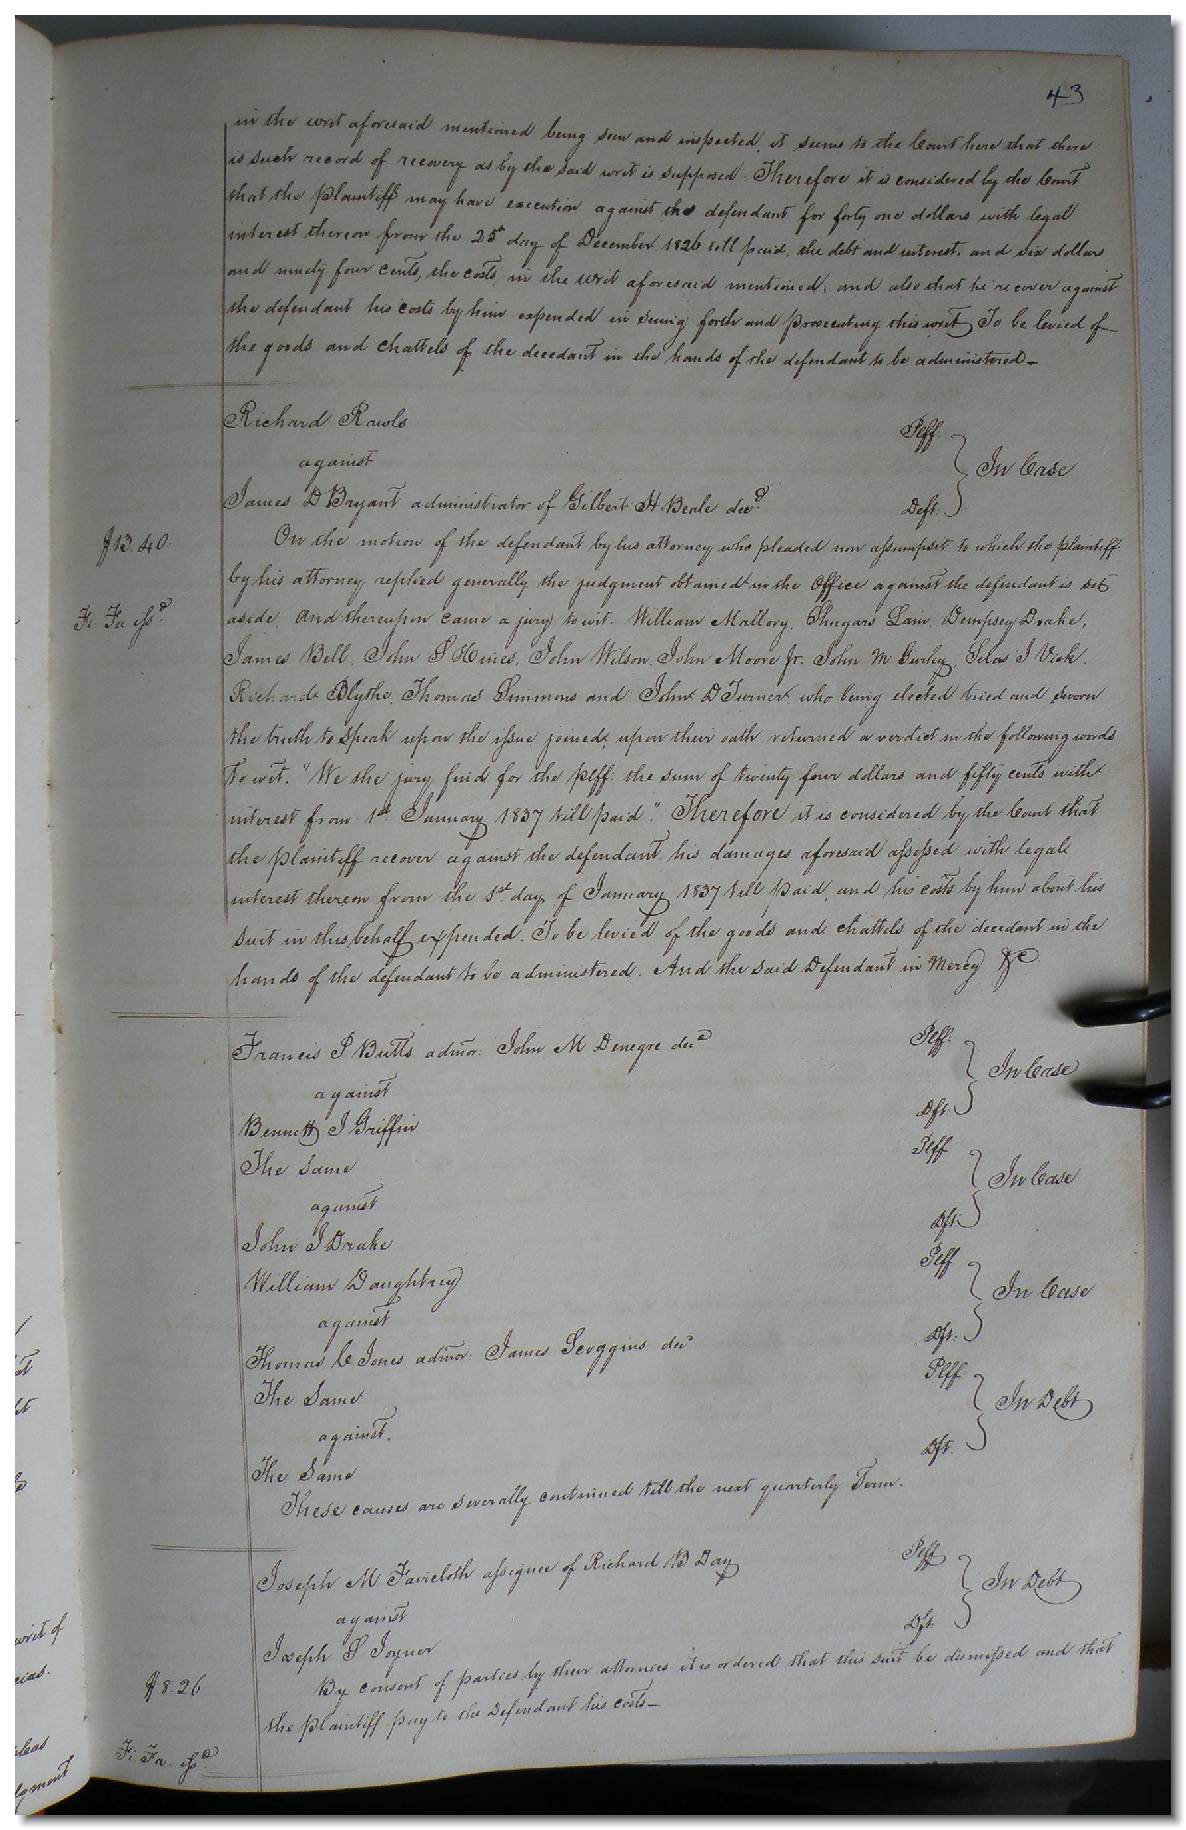 43
in the writ aforesaid mentioned being seen and inspected, it seems to the Court here that there
is such record of recovery as by the said writ is supposed. Therefore it is considered by the Court
that the plaintiff may have execution against the defendant for forty one dollars with legal
interest thereon from the 25th day of December 1826 till paid, the debt and interest, and six dollars
and ninety four cents, the costs in the writ aforesaid mentioned, and also that he recover against
the defendant his costs by him expended in suing forth and prosecuting this writ. To be levied of
the goods and chattels of the decedant in the hands of the defendant to be administered —
Richard Rawls Plff.
against In Case
James D Bryant administrator of Gilbert H Beale decd. Deft.
$13.40.
On the motion of the defendant by his attorney who pleaded non assumpsit to which the plaintiff
by his attorney replied generally, the judgment obtained in the Office against the defendant is set
Fi Fa issd.
aside, and thereupon came a jury, to wit. William Mallory, Shugars Lain, Dempsey Drake,
James Bell, John S Hines, John Wilson, John Moore Jr. John M Gurley, Silas J Vick,
Richard Blythe, Thomas Simmons and John D Turner, who being elected tried and sworn
the truth to speak upon the issue joined, upon their oath returned a verdict in the following words
to wit. "We the jury find for the plff. the sum of twenty four dollars and fifty cents with
interest from 1st January 1837 till paid". Therefore it is considered by the Court that
the plaintiff recover against the defendant his damages aforesaid assessed with legall
interest thereon from the 1st. day of January 1837 till paid, and his costs by him about his
suit in this behalf expended. To be levied of the goods and chattels of the decedant in the
hands of the defendant to be administered. And the said Defendant in Mercy &c.
Francis P Butts admor. John M Denegre decd Plff.
against In Case
Bennett J Griffin Dft.
The Same Plff
against In Case
John J Drake Dft.
William Daughtrey Plff
against In Case
Thomas C Jones admor. James Scoggins decd Dft.
The Same Plff
against. In Debt
The Same Dft.
These causes are severally continued till the next quarterly Term.
Joseph M Faircloth assignee of Richard B Day Plff
against In Debt
Joseph S Joyner Dft.
$8.26
By consent of parties by their attornies it is ordered that this suit be dismissed and that
the plaintiff pay to the Defendant his costs —
Fi. Fa. issd.
writ of
cias.
leas
dgment